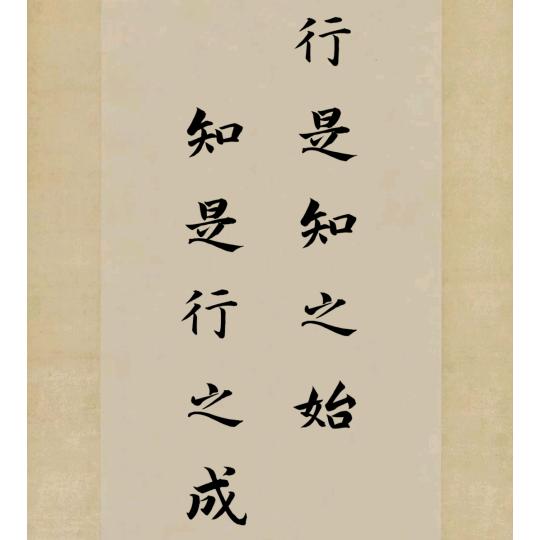 行是知之始
知是行之成